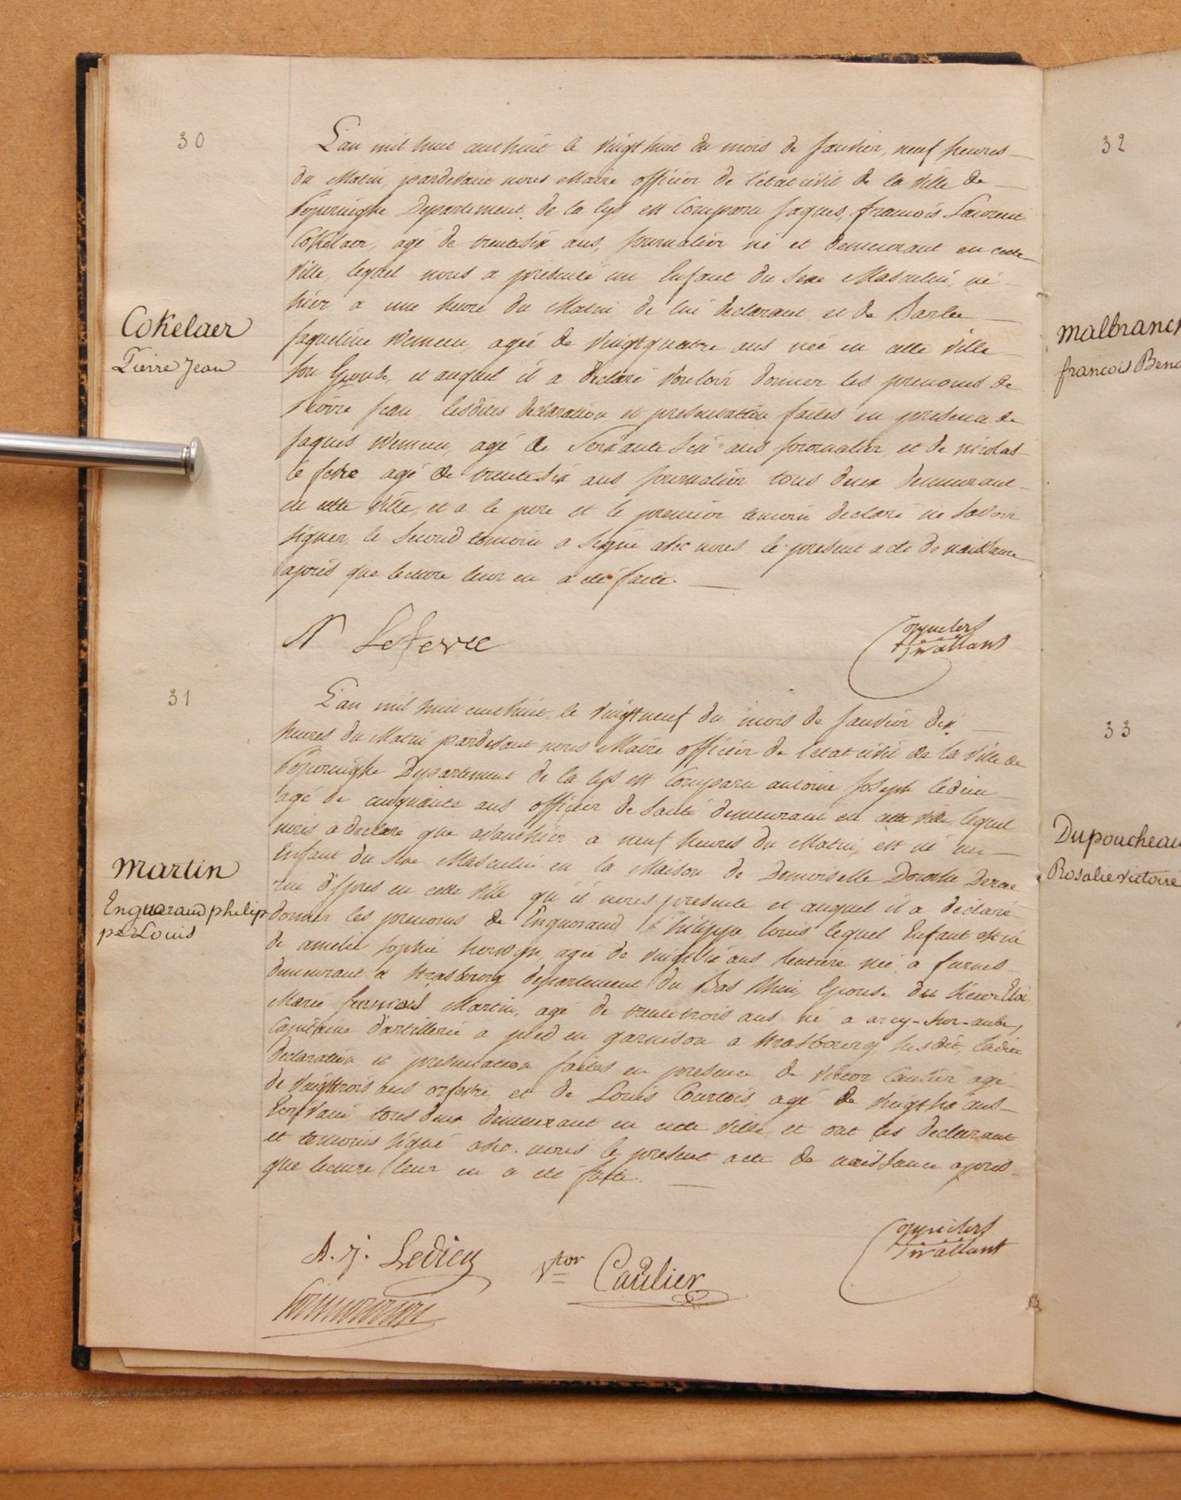 30
L'an mil huit cent huit le vingt huit du mois de Janvier, neuf heures
du Matin, pardevant nous Maire officier de l'état civil de la ville de
Poperinghe Departement de la Lys est Comparu Jaques, francois Laurent
Cokelaer, agé de trentesix ans, Journalier né et demeurant en cette
ville, lequel nous a presenté un Enfant du Sexe Masculin, né
hier a une heure du Matin de lui declarant et de Barbe
Jaqueline agée de vingtquatre ans née en cette ville
Son Epouse, et auquel il a declaré vouloir donner les prenoms de
Pierre Jean, lesdites declaration et presentation faites en presence de
Jaques agé de Soixante Six ans Journalier, et de nicolas
le febre agé de trentesix ans Journalier tous deux demeurant
en cette ville, et a le pere et le premier temoin declaré ne Savoir
Signer, le Second temoin a Signé avec nous le present acte de naissance
après que lecture leur en a été faite.
Cokelaer
Pierre Jean
N Lefevre
31
L'an mil huit cent huit, le vingt neuf du mois de Janvier dix
heures du Matin pardevant nous Maire officier de l'etat civil de la ville de
Poperinghe Departement de la Lys est Comparu antoine Joseph ledieu
agé de cinquante ans officier de Santé demeurant en cette ville lequel
nous a declaré que avanthier a neuf heures du Matin, est né un
Enfant du Sexe Masculin en la Maison de Demoiselle Dorothe
rue d'Ypres en cette ville qu'il nous presente et auquel il a declaré
donner les prenoms de Enguerand Philippe Louis lequel Enfant est né
de amelie Sophie agée de vingt ans Rentiere née a furnes
demeurant a Strasbourg departement du Bas Rhin, Epouse du Sieur Eloi
Marie francois Martin, agé de trentetrois ans né a arcy-Sur-aube,
Capitaine d'artillerie a pied en garnison a Strasbourg Susdit, ladite
declaration et presentation faites en presence de Victor Caulier agé
de vingttrois ans orfevre et de Louis Courtois, agé de vingtsix ans
Ecrivain, tous deux demeurant en cette ville et ont les declarant
et temoins Signé avec nous le present acte de naissance après
que lecture leur en a été faite.
Martin
Enguerand philip
pe Louis
A. J. Ledieu
Vtor Caulier
32
Malbranch
francois Beno
33
Dupoucheau
Rosalie victoire